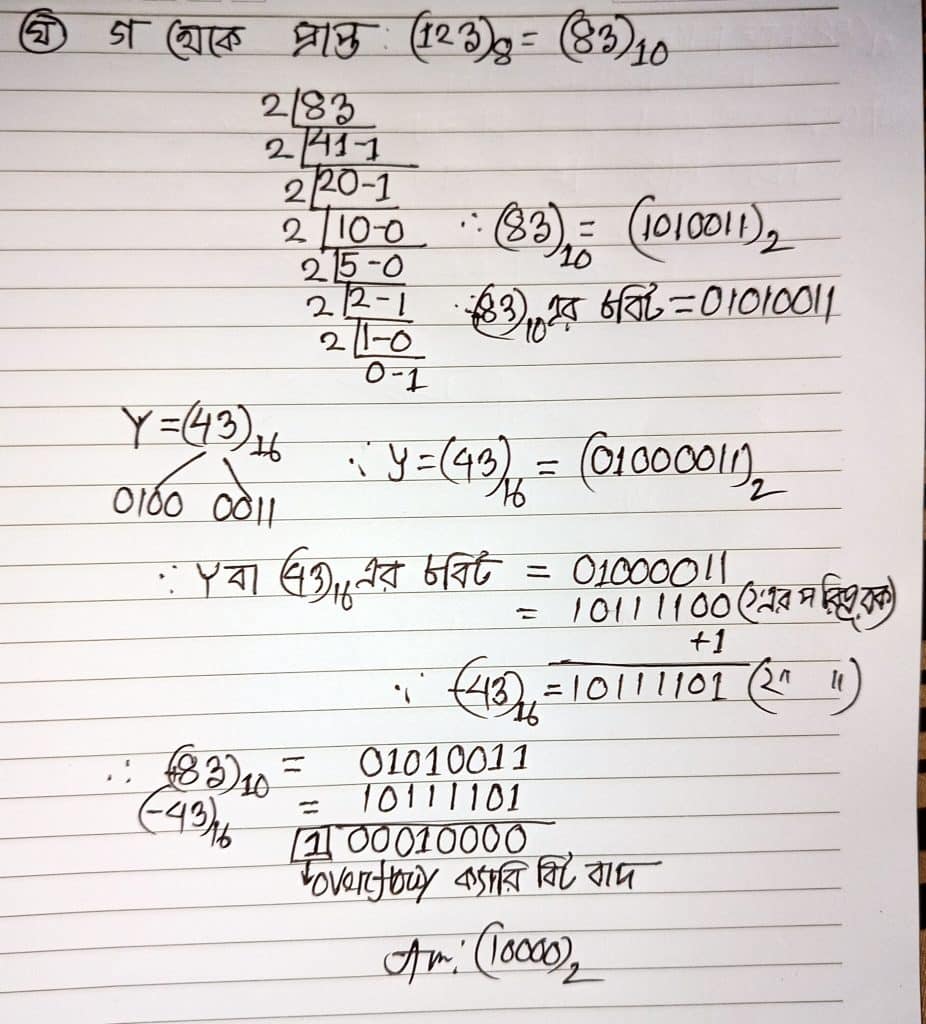 ঘ গ থেকে প্রাপ্ত: (123)8 = (83)10
2|83
2|41-1
2|20-1
2|10-0 ∴ (83)10 = (1010011)2
2|5-0
2|2-1 ∴ (+83)10 এর ৮বিট = 01010011
2|1-0
0-1
Y = (43)16
∴ y = (43)16 = (01000011)2
0100 0011
∴ Y বা (43)16 এর ৮বিট = 01000011
= 10111100 (১'এর পরিপূরক)
+1
∴ (-43)16 = 10111101 (2" ")
∴ (+83)10 = 01010011
(-43)16 = 10111101
[1] 00010000
↓overflow ক্যারি বিট বাদ
Am: (10000)2